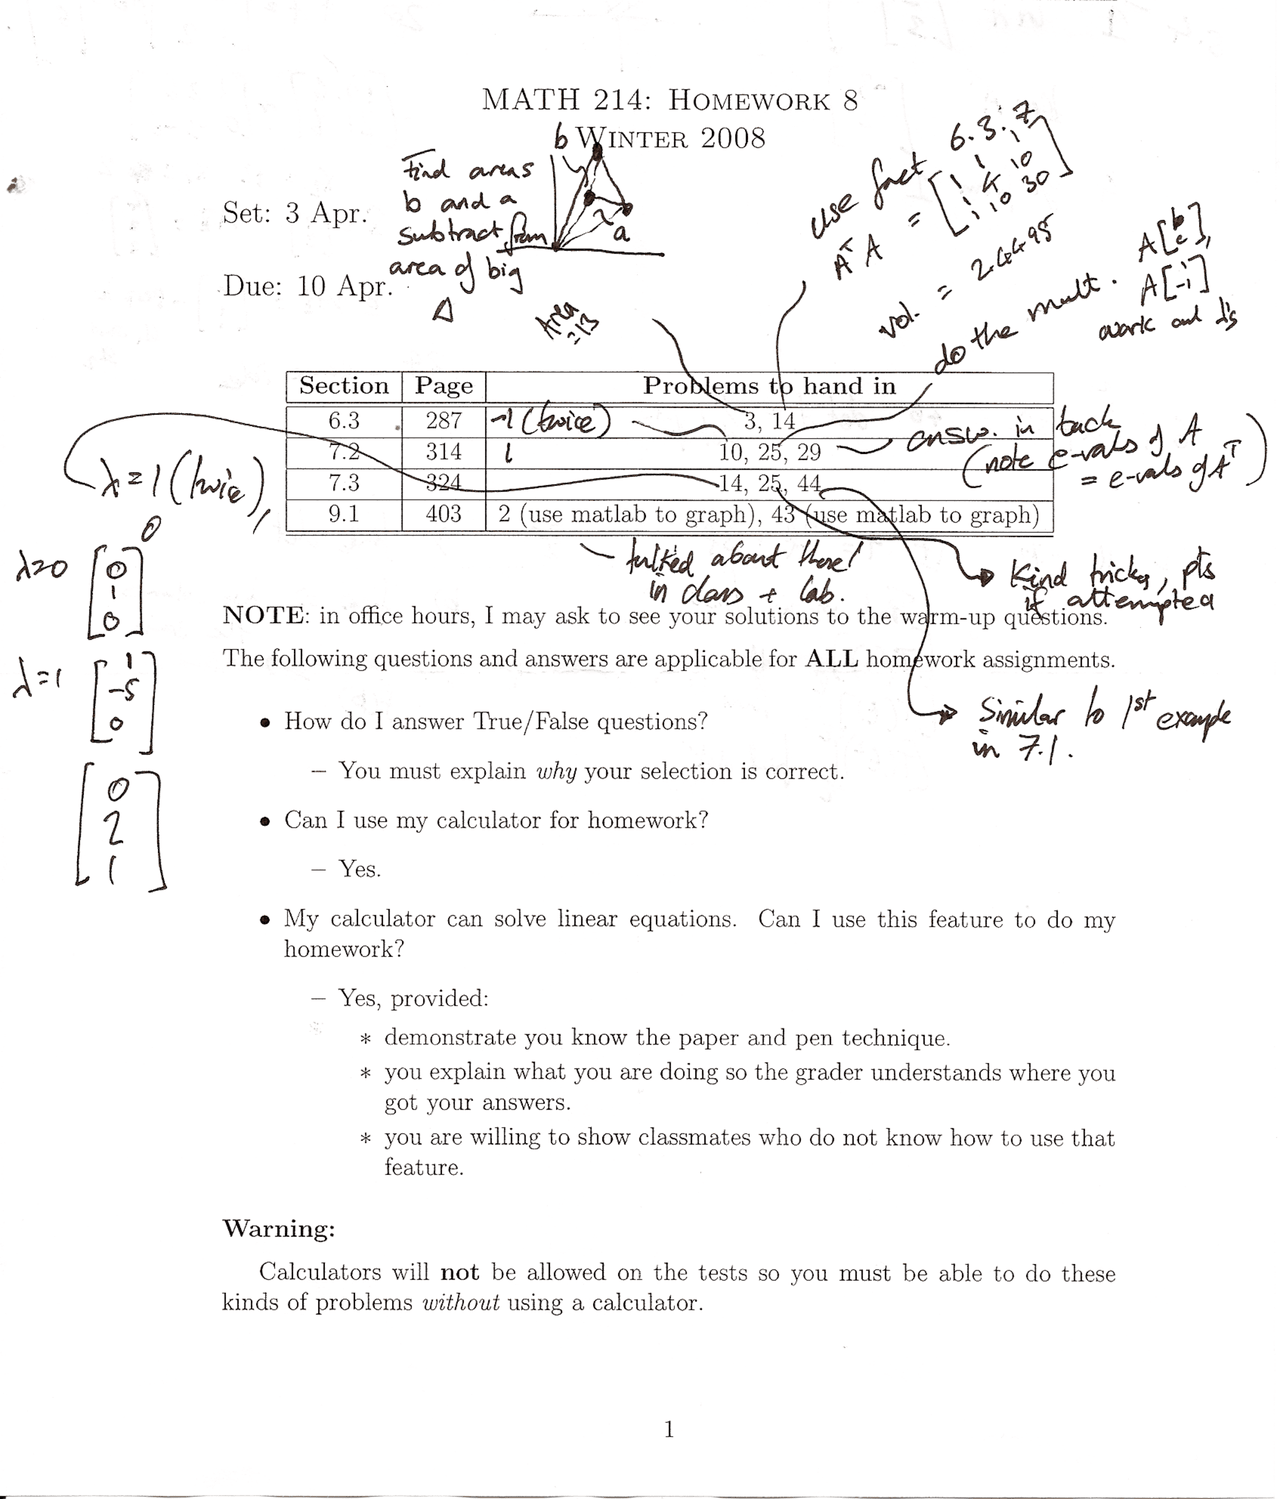 MATH 214: HOMEWORK 8
WINTER 2008
b
a
Find areas
b and a
subtract from
area of big
Δ
Area
=13
Set: 3 Apr.
Due: 10 Apr.
use fact 6.3.7
AᵀA = [1 1 1
1 4 10
1 10 30]
vol. = 2.4495
do the mult. A[b
c],
A[1
-1]
work out λ's
Section Page Problems to hand in
6.3 287 -1 (twice) 3, 14
7.2 314 1 10, 25, 29
7.3 324 14, 25, 44
9.1 403 2 (use matlab to graph), 43 (use matlab to graph)
answ. in back
(note e-vals of A
= e-vals of Aᵀ)
λ=1 (twice),
0
λ=0 [0
1
0]
λ=1 [1
-5
0]
[0
2
1]
talked about these!
in class + lab.
Kind tricky, pts
if attempted
NOTE: in office hours, I may ask to see your solutions to the warm-up questions.
The following questions and answers are applicable for ALL homework assignments.
Similar to 1st example
in 7.1.
• How do I answer True/False questions?
– You must explain why your selection is correct.
• Can I use my calculator for homework?
– Yes.
• My calculator can solve linear equations. Can I use this feature to do my
homework?
– Yes, provided:
* demonstrate you know the paper and pen technique.
* you explain what you are doing so the grader understands where you
got your answers.
* you are willing to show classmates who do not know how to use that
feature.
Warning:
Calculators will not be allowed on the tests so you must be able to do these
kinds of problems without using a calculator.
1